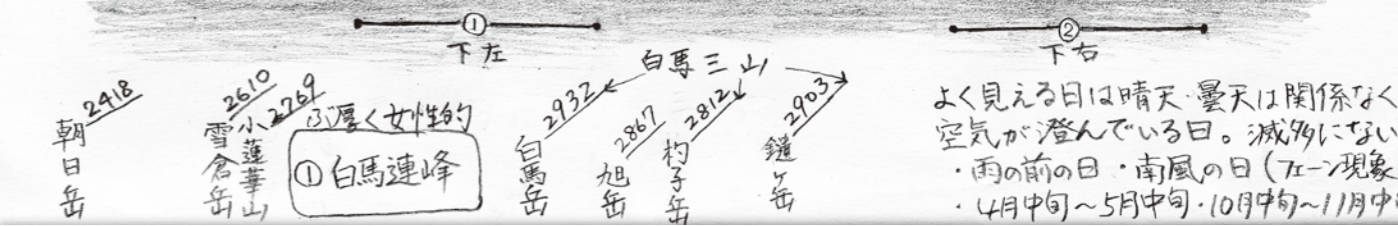 ①
下左
②
下右
白馬三山
2418
朝日岳
2610
雪倉岳
2769
小蓮華山
ぶ厚く女性的
①白馬連峰
2932
白馬岳
2867
旭岳
2812
杓子岳
2903
鑓ヶ岳
よく見える日は晴天・曇天は関係なく
空気が澄んでいる日。滅多にない
・雨の前の日・南風の日(フェーン現象
・4月中旬〜5月中旬・10月中旬〜11月中